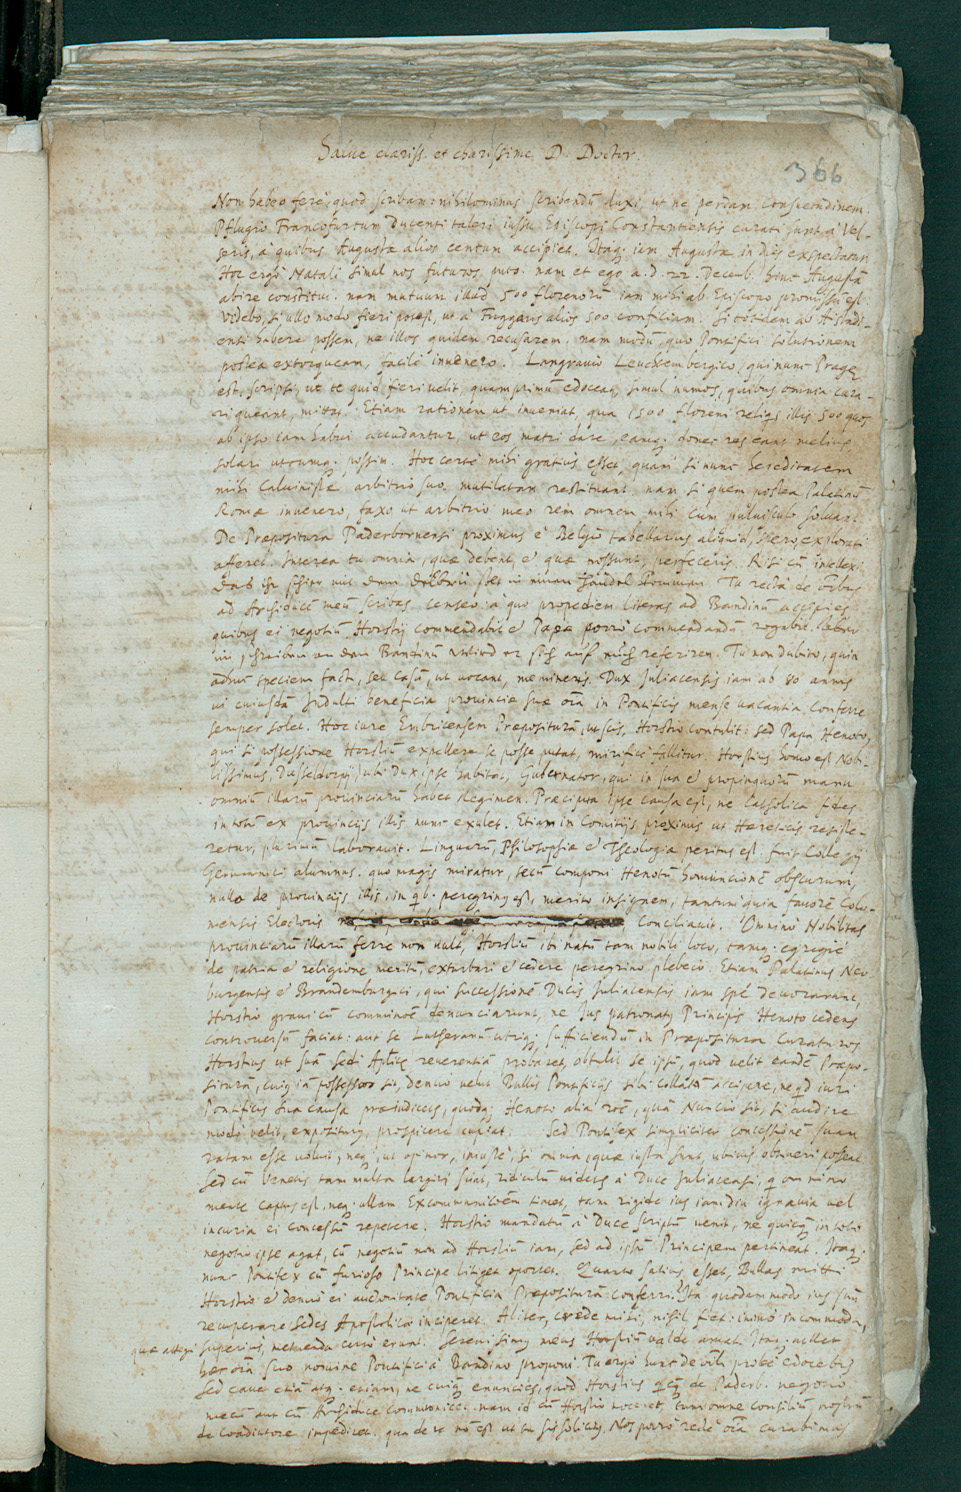 Salue clariss. et charissime D. Doctor.
366
Non habeo ferè, quod scribam: nihilominus scribendū duxi, ut ne perdam consuetudinem.
Pflugio Francofurtum ducenti taleri iussu Episcopi Constantiensis curati sunt à Vel-
seris, à quibus Augustæ alios centum accipiet. Itaq. iam Augustæ in dies expectatur.
Hoc ergò Natali simul nos futuros puto. nam et ego a. d. 22. Decemb. hinc Augustā
abire constitui. nam mutuum illud 500 florenorū iam mihi ab Episcopo promissū est.
Videbo, si ullo modo fieri potest, ut à Fuggaris alios 500 conficiam. Si totidem ab
habere possem, ne illos quidem recusarem. nam modū, quo Pontifici solutionem
postea extorqueam, facilè inuenero. Langrauio Leuchtembergico, qui nunc Pragæ
est, scripsi, ut te quid fieri uelit, quamprimū edoceat, simul numos, quibus omnia cura-
ri queant, mittat. Etiam rationem ut inueniat, qua 1500 floreni reliqi illis 500 quos
ab ipso iam habui accudantur, ut eos matri dare, eamq. donec res eant melius
solari utcumq. possim. Hoc certè mihi gratius esset, quàm si nunc hereditatem
mihi Caluinistæ arbitrio suo mutilatam restituant. nam si quem postea Palatinū
Romæ inuenero, faxo ut arbitrio meo rem omnem mihi cum puluisculo soluat.
De Præpositura Paderbornensi proximus è Belgio tabellarius aliquid, spero, explorati
afferet. Interea tu omnia, quæ debent, et quæ possunt, perfeceris. Risi cū intellexi
das ihr schier mit dem in einen handel kommen. Tu rectà de
ad Archiducē meū scribas, censeo: à quo propediem literas ad Bandinū accipies
quibus ei negotiū Horstij commendabit et Papæ porrò commendandū rogabit.
im schreiben an den Bandinū wird er sich auf mich referiren. Tu non dubito, quin
adhuc speciem facti, seu casū, ut uocant, memineris. Dux Juliacensis iam ab 80 annis
ui cuiusdā Indulti beneficia prouinciæ suæ oīa in Pontificis mense uacantia conferre
semper solet. Hoc iure Embricensem Præpositurā, uti scis, Horstio contulit: sed Papa Henoto,
qui si possessione Horstiū expellere se posse putat, mirificè fallitur. Horstius homo est Nobi-
lissimus, Dusseldorpij, ubi Dux ipse habitat, Gubernator, qui in sua et propinquorū manu
omniū illarū prouinciarū habet Regimen. Præcipua ipse causa est, ne Catholica fides
in totū ex prouincijs illis nunc exulet. Etiam in Comitijs proximis ut Hæreticis resiste-
retur, plurimū laborauit. Linguarū, Philosophiæ et Theologiæ peritus est. fuit Collegij
Germanici alumnus. quo magis miratur, secū componi Henotū homuncionē obscurum,
nullo de prouincijs illis, in qb. peregrinꝰ est, merito insignem, tantum quia fauorē Colo-
niensis Electoris conciliauit. Omnino Nobilitas
prouinciarū illarū ferre non uult, Horstiū ibi natū tam nobili loco, tamq. egregiè
de patria et religione meritū, exturbari et cedere peregrino plebeio. Etiam Palatinus Neo-
burgensis et Brandemburgici, qui successionē Ducis Juliacensis iam spē deuorarunt,
Horstio graui cū communōe denunciarunt, ne Jus patronatꝰ Principis Henoto cedens
controuersū faciat: aut se Lutheranū utrīq. sufficiendū in Præpositura curaturos.
Horstius ut suā Sedi Aplicæ reuerentiā probaret, obtulit se ipsū, quod uelit eandē Præpo-
siturā, cuiꝰ iā possessor sit, denuò uelut Bullis Pontificijs sibi collatā accipere, ne qd iuri
Pontificis sua causa præiudicet, quodq. Henoto alia rōe, quā Nuncio sit, si audire
modò uelit, expositurꝰ, prospicere cupiat. Sed Pontifex simpliciter concessionē suam
ratam esse uoluit, neq., ut opinor, iniustè, si omnia, quæ iusta sunt, ubiuis obtineri possent.
Sed cū Venetis tam multa largiri suat, ridiculū uidetur à Duce Juliacensi, q omnino
mente captus est, neq. ullam Excommunicōem timet, tam rigidè ius iamdiu ignauia uel
incuria ei concessū repetere. Horstio mandatū à Duce scriptū uenit, ne quicq. in toto
negotio ipse agat, cū negotiū non ad Horstiū iam, sed ad ipsū Principem pertineat. Itaq.
nunc Pontifex cū furioso Principe litiget oportet. Quanto satius esset, Bullas mitti
Horstio et denuò ei auctoritate Pontificia Præposituram conferri. Ita quodammodo ius suū
recuperare Sedes Apostolica inciperet. Aliter, crede mihi, nihil fiet. immò incommoda,
quæ attigi superius, metuenda certò erunt. Serenissimꝰ meus Horstiū ualde amat. Itaq. uellet
hæc oīa suo nomine Pontifici à Bandino proponi. Tu ergò hunc de oīb. probè edocebis.
Sed caue etiā atq. etiam, ne cuiq. enuncies, quod Horstius qcq. de Paderb. negotio
mecū aut cū Archiduce communicet. nam id cū Horstio noceret, tum omne consiliū nostrū
de Coadiutore impediret. qua de re nō est ut tu sis solicitꝰ. Nos porrò rectè oīa curabimus